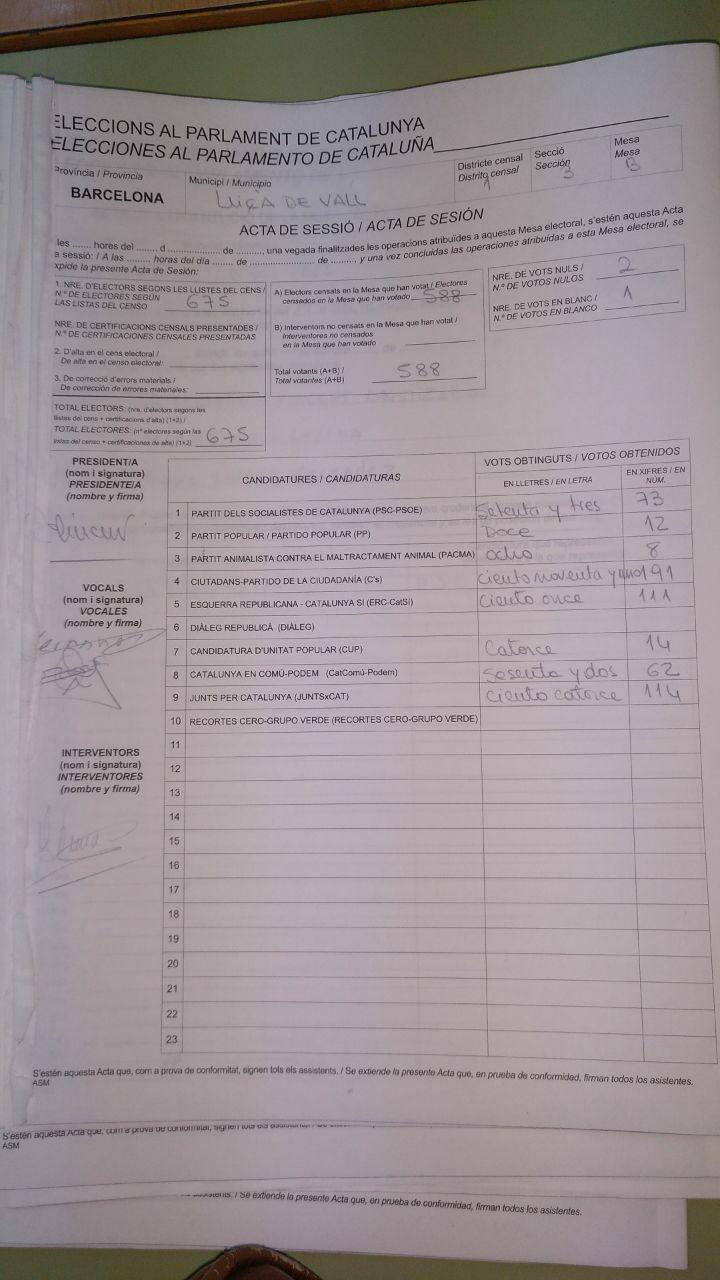 ELECCIONS AL PARLAMENT DE CATALUNYA
ELECCIONES AL PARLAMENTO DE CATALUÑA
Província / Provincia
BARCELONA
Municipi / Municipio
LLIÇÀ DE VALL
Districte censal
Distrito censal
1
Secció
Sección
3
Mesa
Mesa
B
ACTA DE SESSIÓ / ACTA DE SESIÓN
les ........ hores del ........ d ................. de ........, una vegada finalitzades les operacions atribuïdes a aquesta Mesa electoral, s'estén aquesta Acta
a sessió: / A las ........ horas del día ........ de ................. de ........, y una vez concluidas las operaciones atribuidas a esta Mesa electoral, se
xpide la presente Acta de Sesión:
1. NRE. D'ELECTORS SEGONS LES LLISTES DEL CENS /
N.º DE ELECTORES SEGÚN
LAS LISTAS DEL CENSO 675
NRE. DE CERTIFICACIONS CENSALS PRESENTADES /
N.º DE CERTIFICACIONES CENSALES PRESENTADAS
2. D'alta en el cens electoral /
De alta en el censo electoral:
3. De correcció d'errors materials /
De corrección de errores materiales:
TOTAL ELECTORS: (nre. d'electors segons les
llistes del cens + certificacions d'alta) (1+2) /
TOTAL ELECTORES: (nº electores según las
listas del censo + certificaciones de alta) (1+2) 675
A) Electors censats en la Mesa que han votat / Electores
censados en la Mesa que han votado 588
B) Interventors no censats en la Mesa que han votat /
Interventores no censados
en la Mesa que han votado
Total votants (A+B) /
Total votantes (A+B) 588
NRE. DE VOTS NULS /
N.º DE VOTOS NULOS 2
NRE. DE VOTS EN BLANC /
N.º DE VOTOS EN BLANCO 1
PRESIDENT/A
(nom i signatura)
PRESIDENTE/A
(nombre y firma)
VOCALS
(nom i signatura)
VOCALES
(nombre y firma)
INTERVENTORS
(nom i signatura)
INTERVENTORES
(nombre y firma)
CANDIDATURES / CANDIDATURAS
VOTS OBTINGUTS / VOTOS OBTENIDOS
EN LLETRES / EN LETRA
EN XIFRES / EN
NÚM.
1 PARTIT DELS SOCIALISTES DE CATALUNYA (PSC-PSOE) Setenta y tres 73
2 PARTIT POPULAR / PARTIDO POPULAR (PP) Doce 12
3 PARTIT ANIMALISTA CONTRA EL MALTRACTAMENT ANIMAL (PACMA) ocho 8
4 CIUTADANS-PARTIDO DE LA CIUDADANÍA (C's) Ciento noventa y uno 191
5 ESQUERRA REPUBLICANA - CATALUNYA SI (ERC-CatSí) Ciento once 111
6 DIÀLEG REPUBLICÀ (DIÀLEG)
7 CANDIDATURA D'UNITAT POPULAR (CUP) Catorce 14
8 CATALUNYA EN COMÚ-PODEM (CatComú-Podem) Sesenta y dos 62
9 JUNTS PER CATALUNYA (JUNTSxCAT) Ciento catorce 114
10 RECORTES CERO-GRUPO VERDE (RECORTES CERO-GRUPO VERDE)
11
12
13
14
15
16
17
18
19
20
21
22
23
S'estén aquesta Acta que, com a prova de conformitat, signen tots els assistents. / Se extiende la presente Acta que, en prueba de conformidad, firman todos los asistentes.
ASM
S'estén aquesta Acta que, com a prova de conformitat, signen tots els
ASM
/ Se extiende la presente Acta que, en prueba de conformidad, firman todos los asistentes.